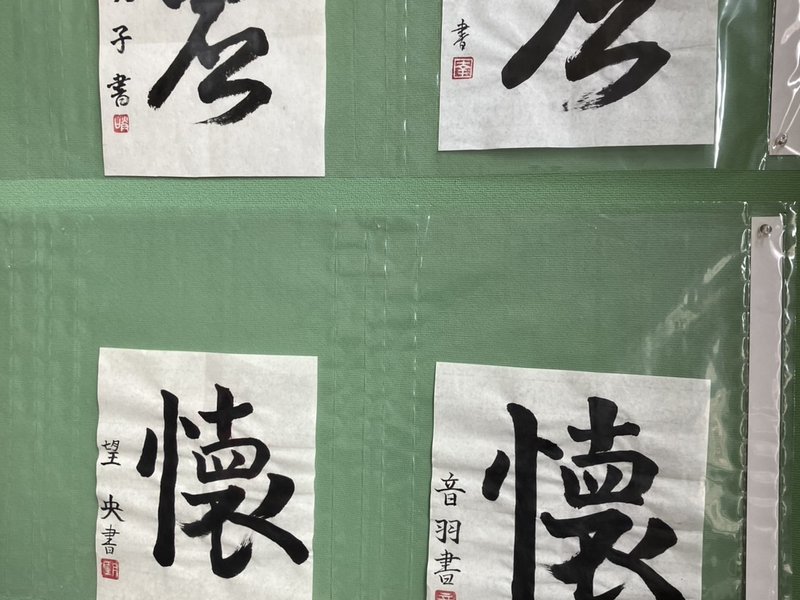 子書
書
懐
望央書
懐
音羽書